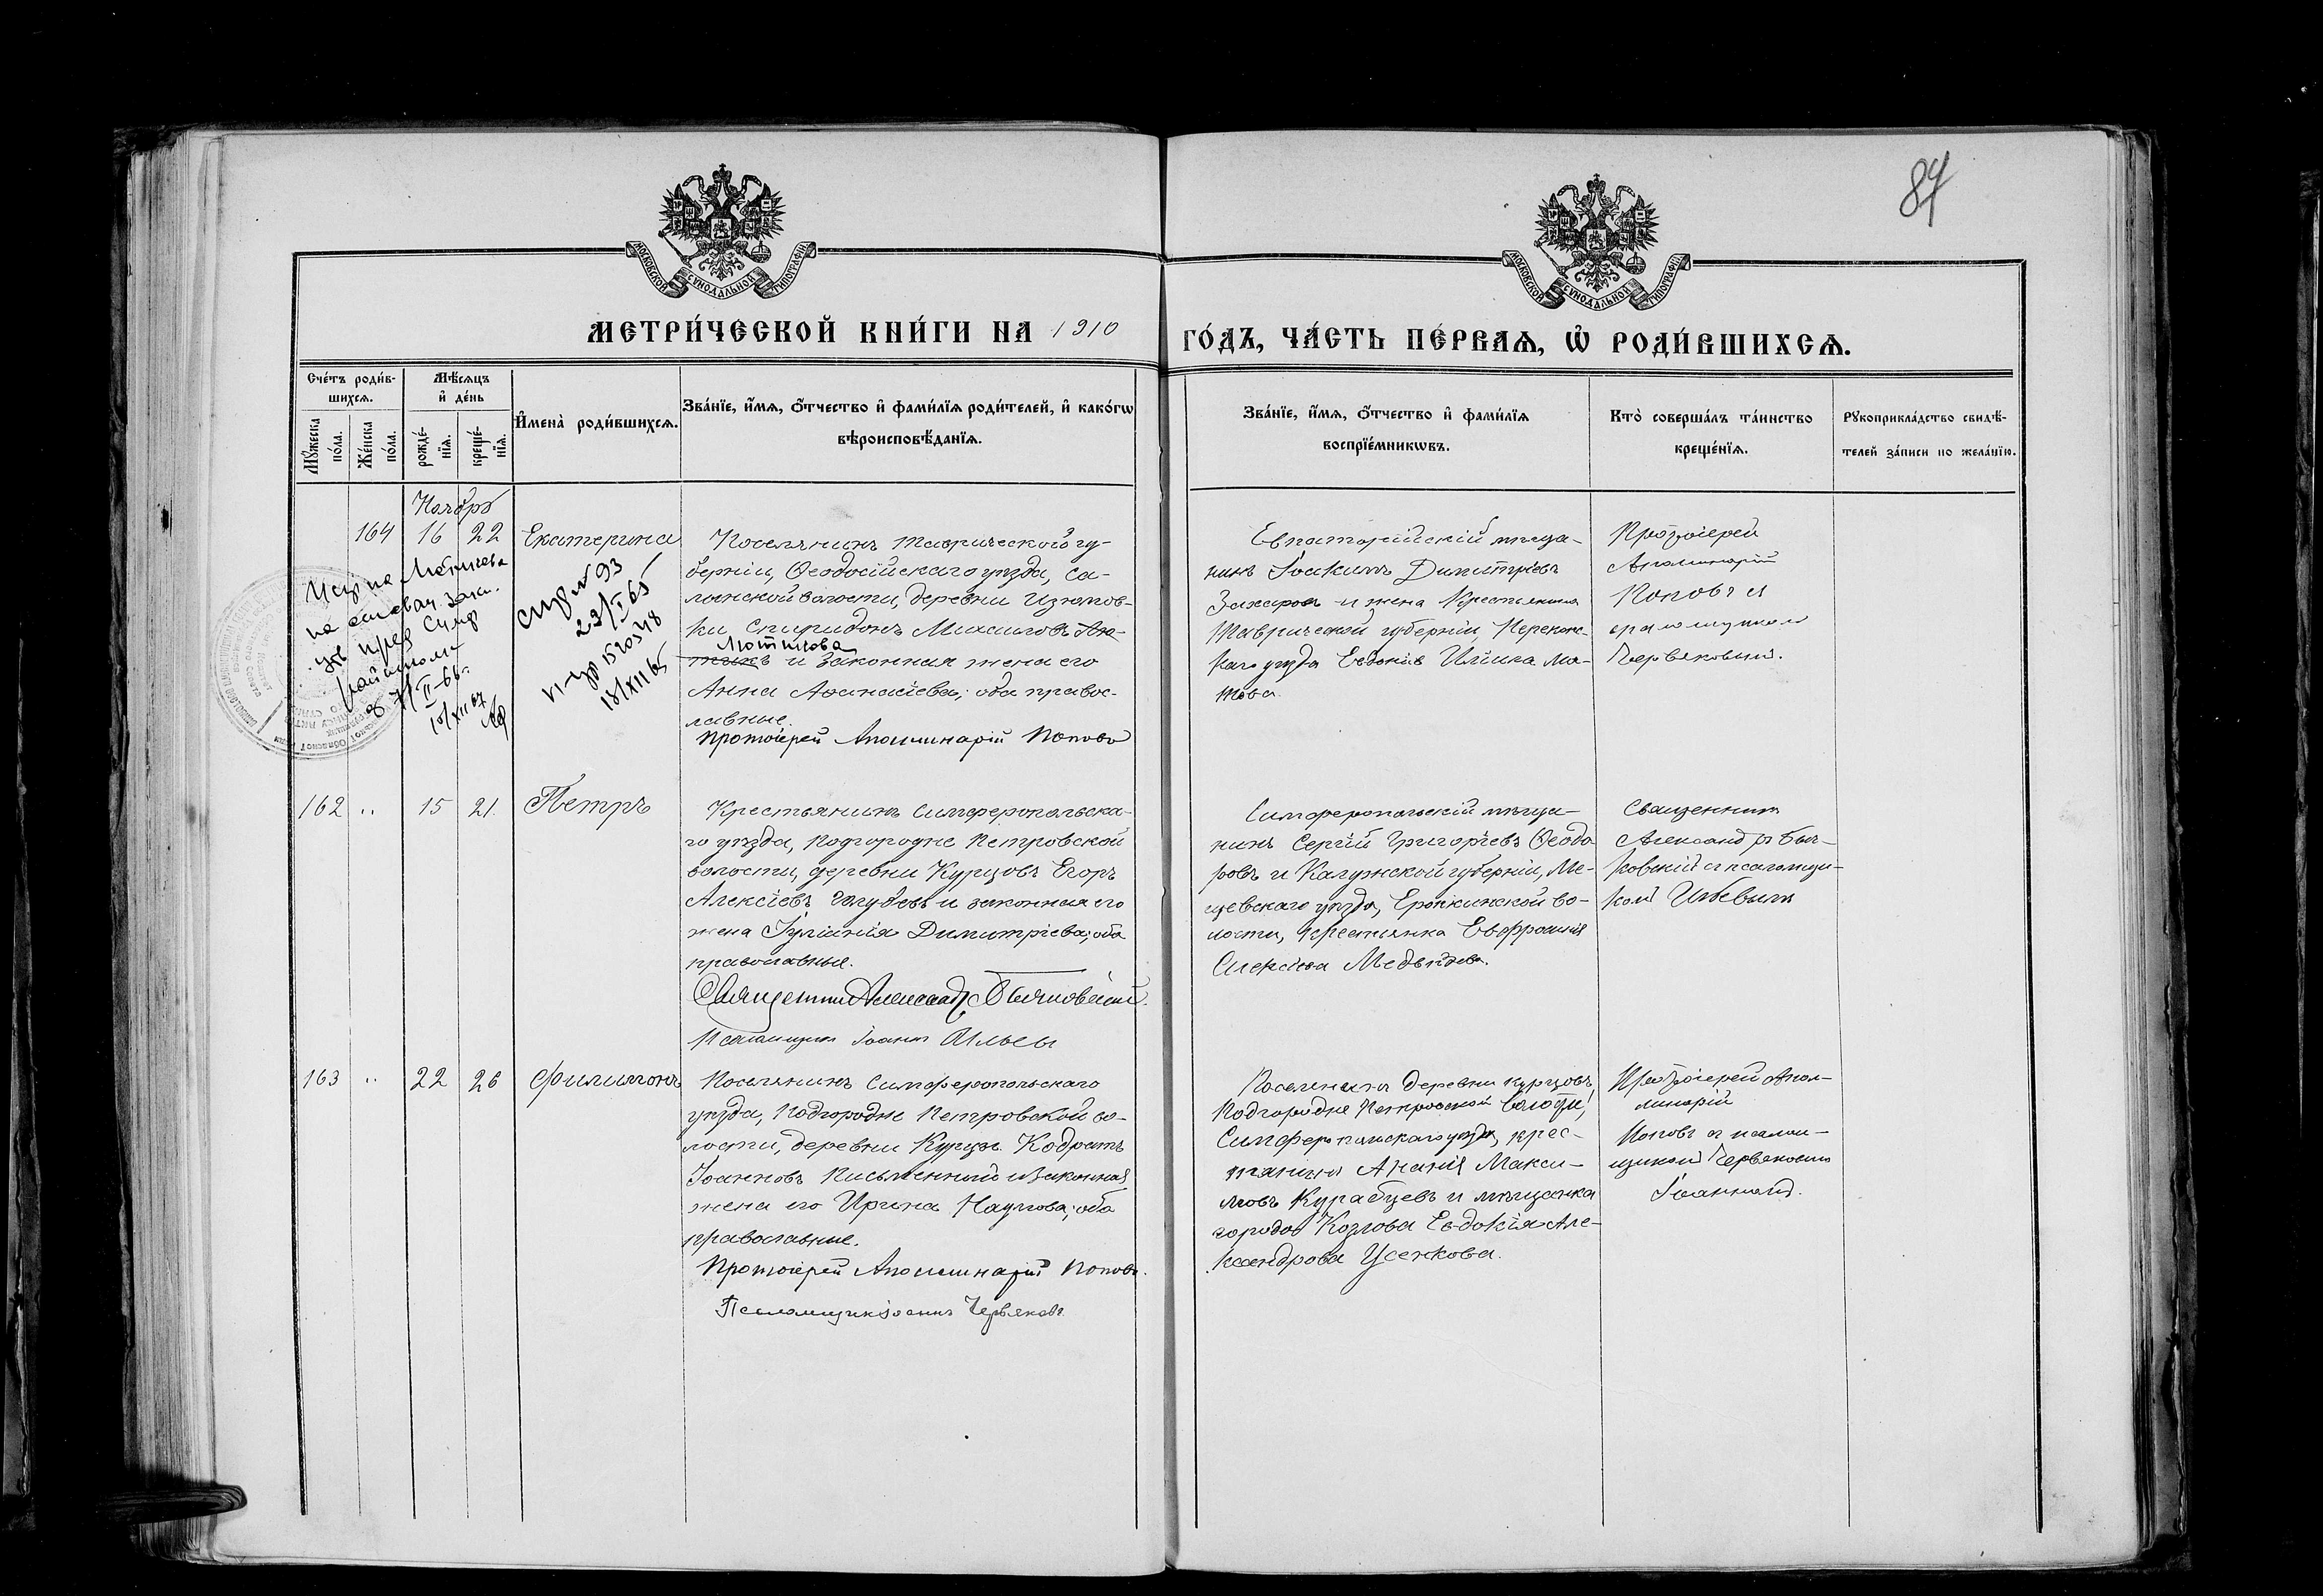 84
МОСКОВСКОЙ СѴНОДАЛЬНОЙ ТИПОГРАФІИ
МОСКОВСКОЙ СѴНОДАЛЬНОЙ ТИПОГРАФІИ
МЕТРИ́ЧЕСКОЙ КНИ́ГИ НА 1910
ГО́ДЪ, ЧА́СТЬ ПЕ́РВАѦ, Ѡ҆ РОДИ́ВШИХСѦ.
Сче́тъ роди́в-
шихсѧ.
Мꙋ́жеска
по́ла.
Же́нска
по́ла.
Мѣ́сѧцъ
и҆ де́нь
рожде́-
нїѧ.
креще́-
нїѧ.
И҆мена̀ роди́вшихсѧ.
Зва́нїе, и҆́мѧ, ѻ҆́тчество и҆ фами́лїѧ роди́телей, и҆ како́гѡ
вѣроисповѣ́данїѧ.
Зва́нїе, и҆́мѧ, ѻ҆́тчество и҆ фами́лїѧ
воспрїе́мникѡвъ.
Кто̀ соверша́лъ та́инство
креще́нїѧ.
Рꙋкоприкла́дство свидѣ́-
телей за́писи по жела́нїю.
Ноябрь
164 16 22 Екатерина
Поселянинъ Таврической гу-
берніи, Ѳеодосійскаго уѣзда, Са-
лынской волости, деревни Изюмов-
ки Спиридонъ Михаиловъ
и законная жена его
Анна Аѳанасіева; оба правос-
лавные.
Протоіерей Аполлинарій Поповъ
Евпаторійскій мѣща-
нинъ Іоакимъ Димитріевъ
Захаровъ и жена крестьянина
Таврической губерніи, Перекопс-
каго уѣзда Евдокія Илiина Ма-
Протоіерей
Аполинарій
Поповъ и
Червяковымъ.
спр № 93
23/I 65
15/XII 65
162 " 15 21. Петръ
Крестьянинъ Симферопольска-
го уѣзда, Подгородне Петровской
волости, деревни Курцовъ Егоръ
Алексіевъ Голубовъ и законная его
жена Іуліанія Димитріева; оба
православные.
Священникъ Александръ
Псаломщикъ Іоаннъ
Симферопольскій мѣща-
нинъ Сергій Григоріевъ Ѳеодо
ровъ и Калужской губерніи, Ме-
щевскаго уѣзда, Еропкинской во-
лости, крестьянка Евфросинія
Алексіева Медвѣдева.
Священникъ
Александръ Быч-
ковскій съ псаломщи-
комъ
163 " 22 26 Филимонъ
Поселянинъ Симферопольскаго
уѣзда, Подгородне Петровской во-
лости, деревни Курцы Кодратъ
Іоанновъ Письменный и законная
жена его Ирина Наумова; оба
православные.
Протоіерей Аполлинарій Поповъ.
Псаломщикъ Іоаннъ Червяковъ
Поселянинъ деревни Курцовъ,
Подгородне Петровской волости,
Симферопольскаго уѣзда, крес-
тьянинъ Ананія Макси-
мовъ Курабцевъ и мѣщанка
города Козлова Евдокія Але-
ксандрова Усенкова.
Протоіерей Апол-
линарій
Поповъ съ псалом-
щикомъ Червяковымъ
Іоанномъ.